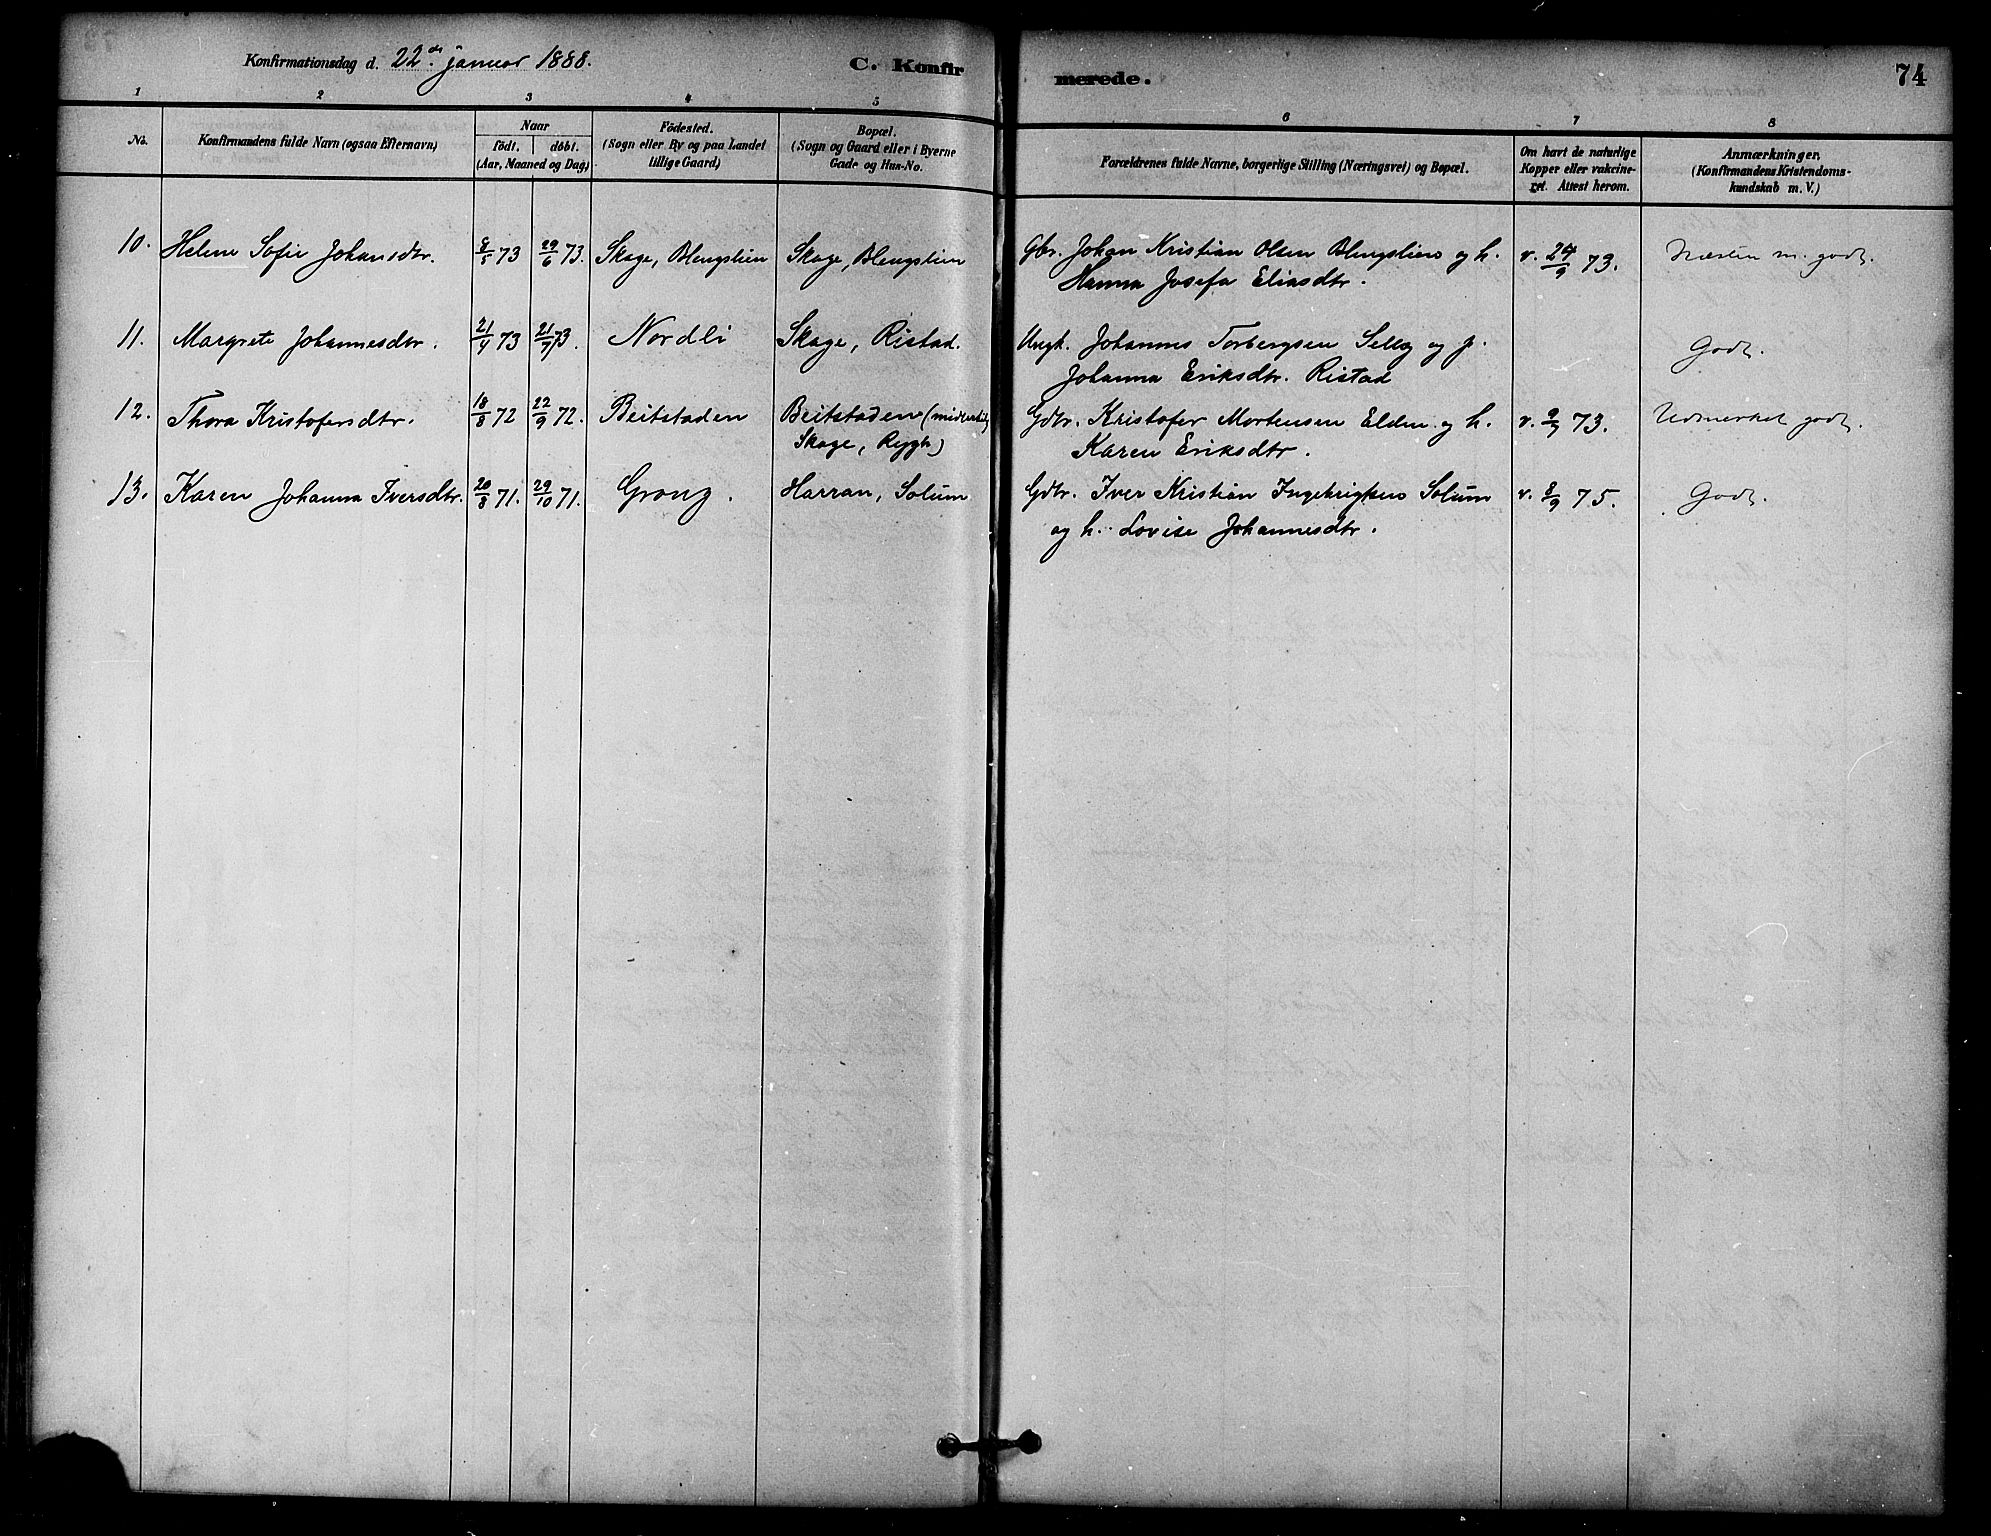 Konfirmationsdag d. 22de januar 1888.
C. Konfirmerede.
74
1 2 3 4 5 6 7 8
No.
Konfirmandens fulde Navn (ogsaa Efternavn)
Naar
födt. döbt.
(Aar, Maaned og Dag)
Födested.
(Sogn eller By og paa Landet
tillige Gaard)
Bopæl.
(Sogn og Gaard eller i Byerne
Gade og Hus-No.
Forældrenes fulde Navne, borgerlige Stilling (Næringsvei) og Bopæl.
Om havt de naturlige
Kopper eller vakcine-
ret. Attest herom.
Anmærkninger.
(Konfirmandens Kristendoms-
kundskab m. V.)
10. Helene Sofie Johansdtr. 8/5 73 29/6 73. Skage, Blengslien Skage, Blengslien Gbr. Johan Kristian Olsen Blengslien og h. v. 24/9 73. Næsten m. godt.
Hanna Josefa Eliasdtr.
11. Margrete Johannesdtr. 21/4 73 21/7 73. Nordli Skage, Ristad. Ungk. Johannes Torbergsen Selleg og p. Godt.
Johanna Eriksdtr. Ristad
12. Thora Kristofersdtr. 18/8 72 22/9 72. Beitstaden Beitstaden (midlertidig Gdbr. Kristofer Mortensen Elden og h. v. 9/7 73. Udmerket godt.
Skage, Rygh) Karen Eriksdtr.
13. Karen Johanna Iversdtr. 20/8 71. 29/10 71. Grong. Harran, Solum Gdbr. Iver Kristian Ingebrigtsen Solum v. 8/9 75. Godt.
og h. Lovise Johannesdtr.